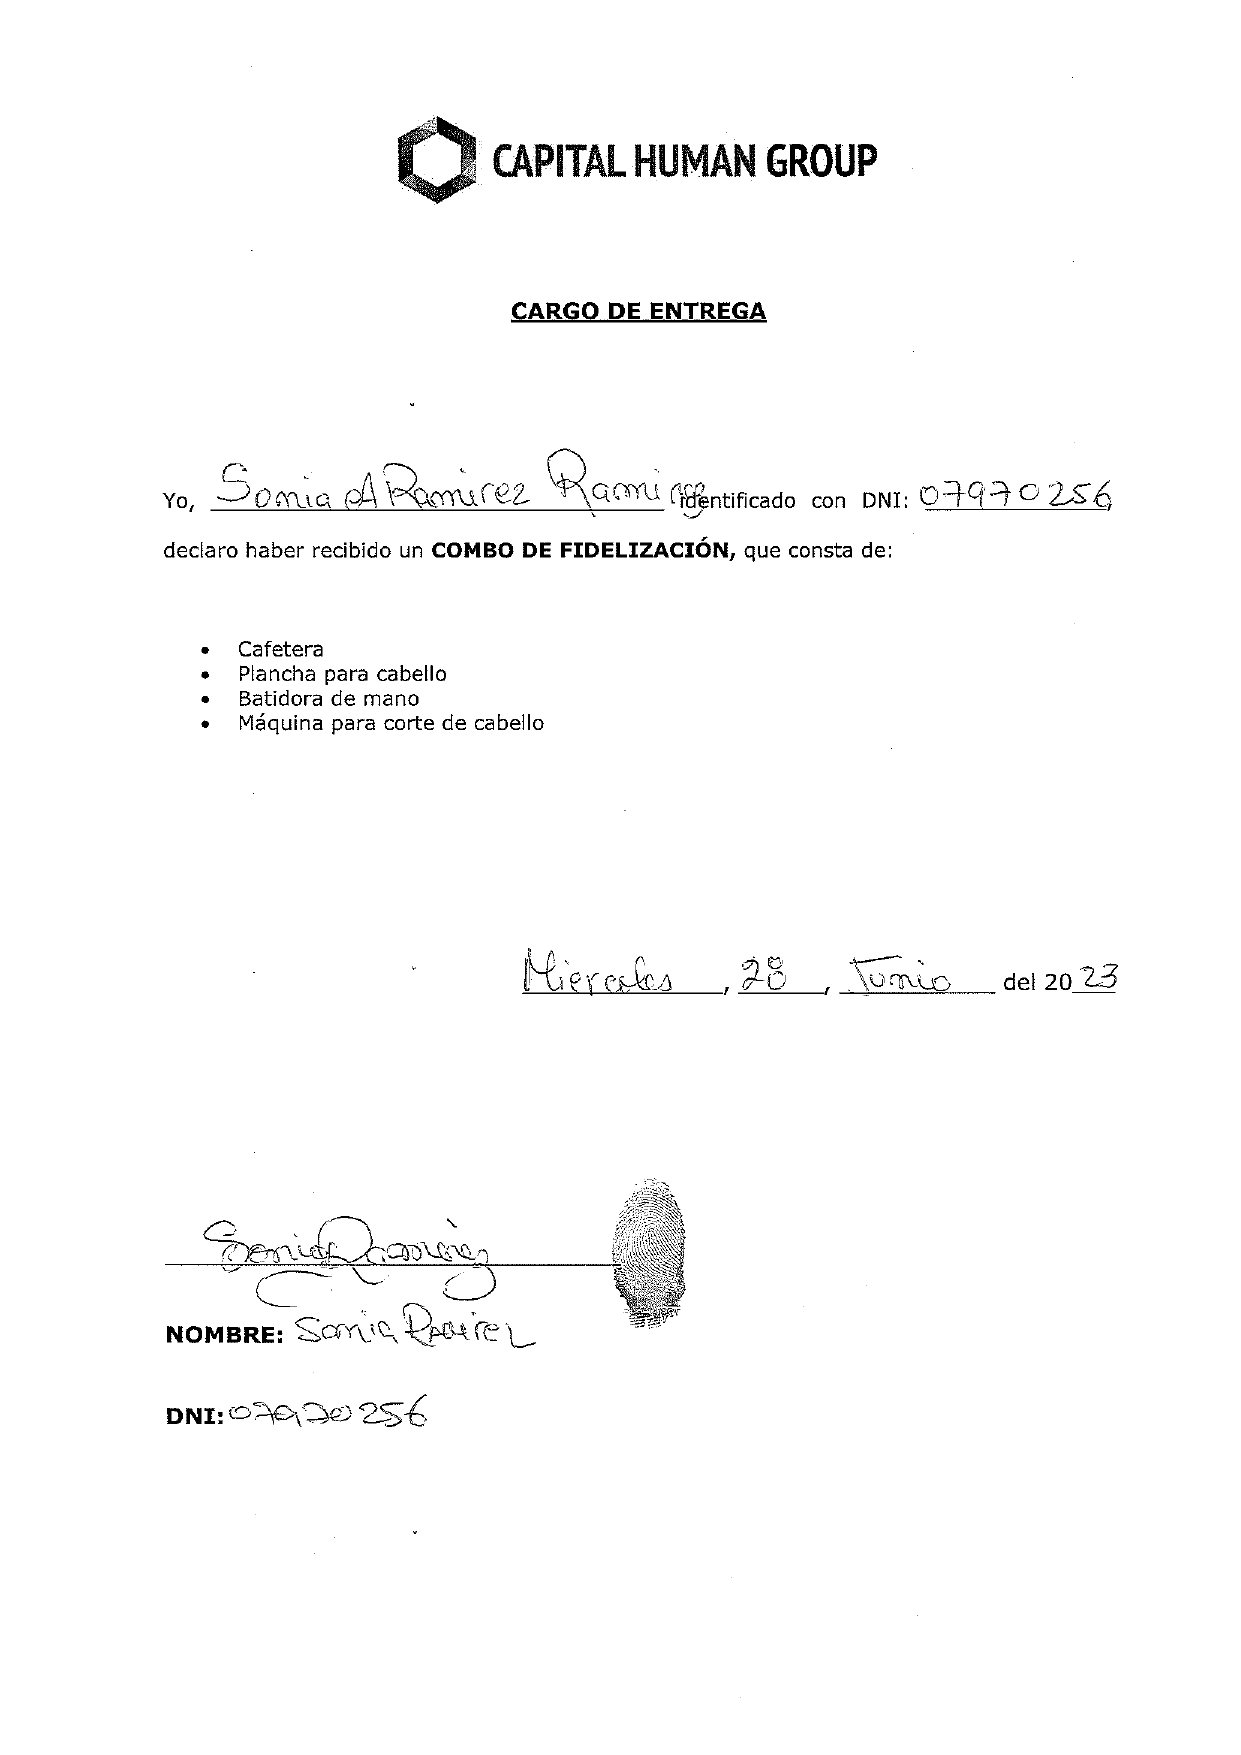 CAPITAL HUMAN GROUP
CARGO DE ENTREGA
Yo, Sonia A Ramirez Ramirez identificado con DNI: 07970256
declaro haber recibido un COMBO DE FIDELIZACIÓN, que consta de:
• Cafetera
• Plancha para cabello
• Batidora de mano
• Máquina para corte de cabello
Miercoles, 28, Junio del 2023
Sonia Ramirez
NOMBRE: Sonia Ramirez
DNI: 07970256